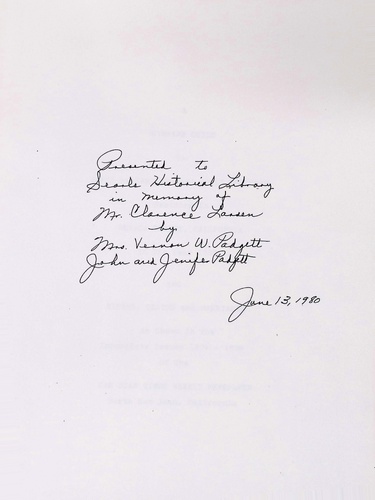 Presented to
Searls Historical Library
in memory of
Mr. Clarence Larsen
by
Mrs. Vernon W. Padgett
John and Jenifer Padgett
June 13, 1980